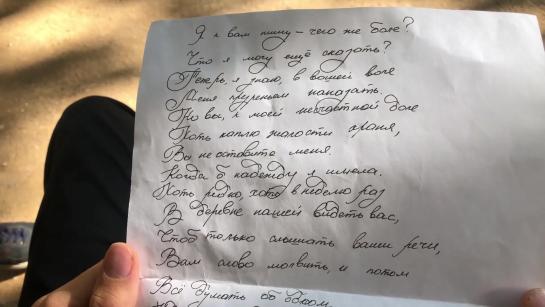 Я к вам пишу – чего же боле?
Что я могу ещё сказать?
Теперь, я знаю, в вашей воле
Меня презреньем наказать.
Но вы, к моей несчастной доле
Хоть каплю жалости храня,
Вы не оставите меня.
Когда б надежду я имела
Хоть редко, хоть в неделю раз
В деревне нашей видеть вас,
Чтоб только слышать ваши речи,
Вам слово молвить, и потом
Всё думать об одном,